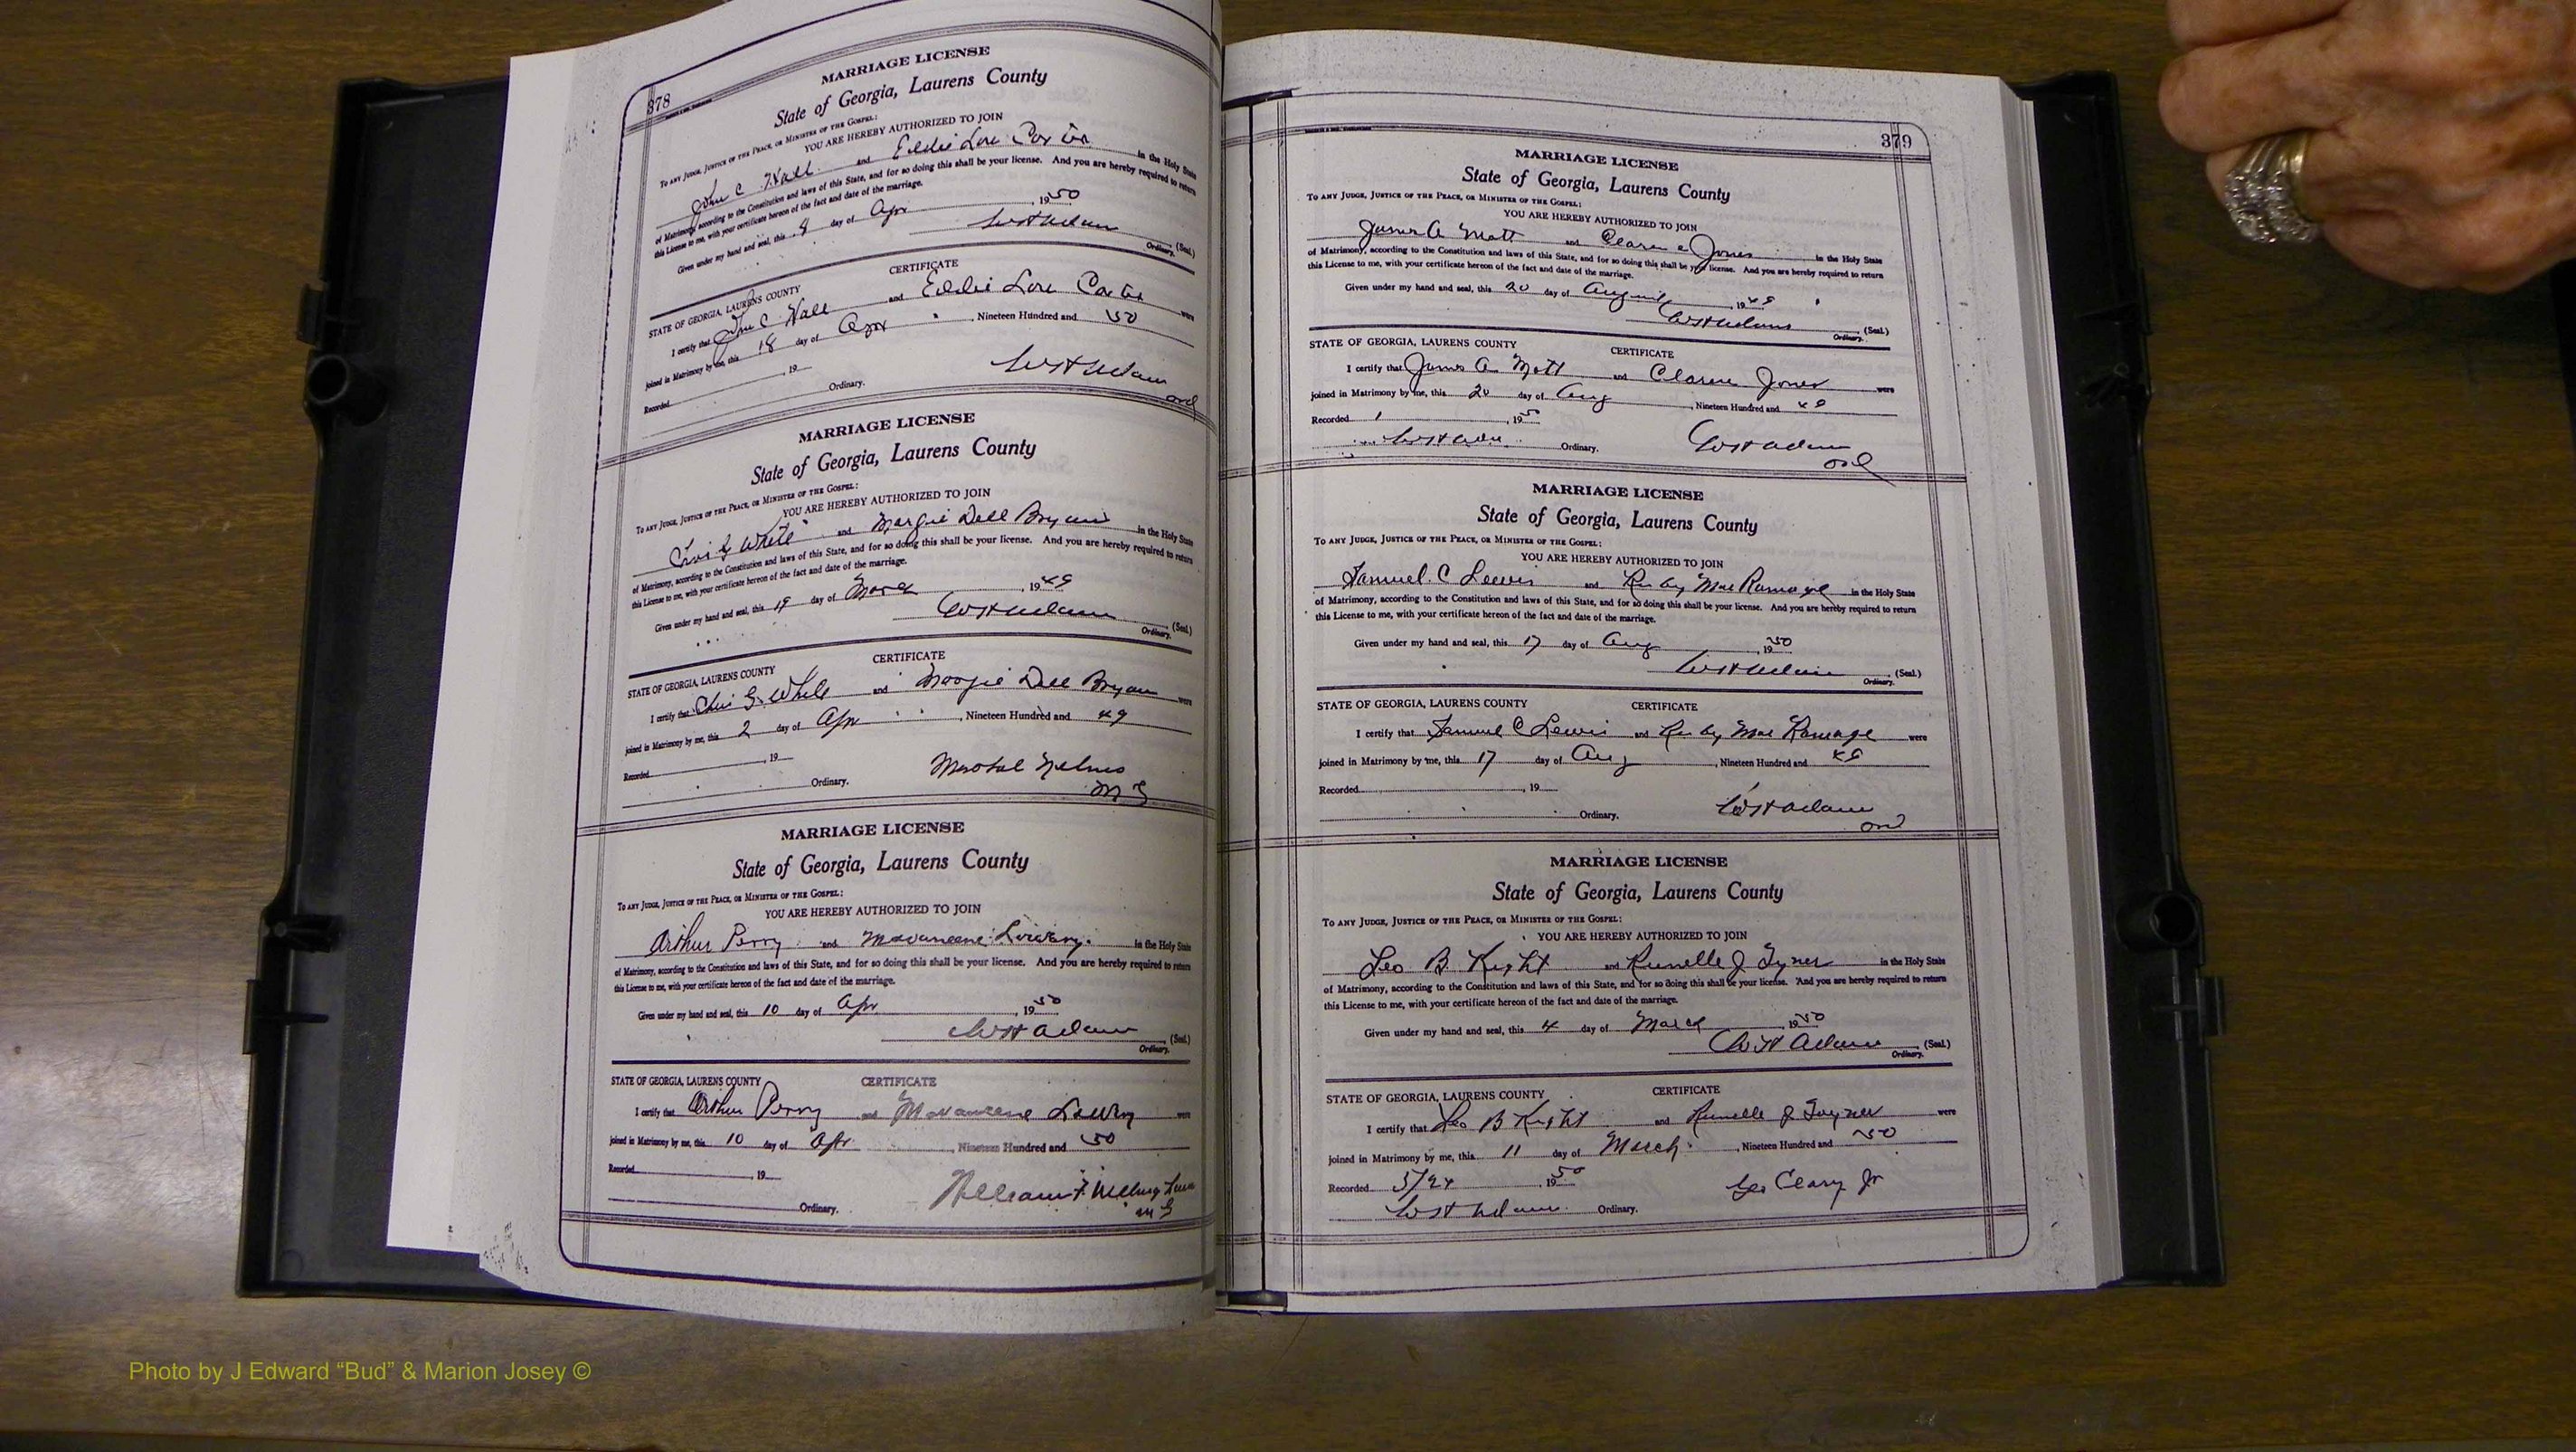 378
MARRIAGE LICENSE
State of Georgia, Laurens County
To any Judge, Justice of the Peace, or Minister of the Gospel:
YOU ARE HEREBY AUTHORIZED TO JOIN
Jno C Hall and Eddie Lou in the Holy State
of Matrimony, according to the Constitution and laws of this State, and for so doing this shall be your license. And you are hereby required to return
this License to me, with your certificate hereon of the fact and date of the marriage.
Given under my hand and seal, this 8 day of Apr, 1950
(Seal.)
Ordinary.
STATE OF GEORGIA, LAURENS COUNTY CERTIFICATE
I certify that Jno C Hall and Eddie Lou were
joined in Matrimony by me, this 18 day of Apr, Nineteen Hundred and 50
Recorded , 19 W H Adams
Ordinary. ord
MARRIAGE LICENSE
State of Georgia, Laurens County
To any Judge, Justice of the Peace, or Minister of the Gospel:
YOU ARE HEREBY AUTHORIZED TO JOIN
White and Margie Dell Bryan in the Holy State
of Matrimony, according to the Constitution and laws of this State, and for so doing this shall be your license. And you are hereby required to return
this License to me, with your certificate hereon of the fact and date of the marriage.
Given under my hand and seal, this 19 day of March, 1949
W H Adams (Seal.)
Ordinary.
STATE OF GEORGIA, LAURENS COUNTY CERTIFICATE
I certify that G. White and Margie Dell Bryan were
joined in Matrimony by me, this 2 day of Apr, Nineteen Hundred and 49
Recorded , 19 Nelms
Ordinary. M G
MARRIAGE LICENSE
State of Georgia, Laurens County
To any Judge, Justice of the Peace, or Minister of the Gospel:
YOU ARE HEREBY AUTHORIZED TO JOIN
Arthur Perry and Lowery in the Holy State
of Matrimony, according to the Constitution and laws of this State, and for so doing this shall be your license. And you are hereby required to return
this License to me, with your certificate hereon of the fact and date of the marriage.
Given under my hand and seal, this 10 day of Apr, 1950
W H Adams (Seal.)
Ordinary.
STATE OF GEORGIA, LAURENS COUNTY CERTIFICATE
I certify that Arthur Perry and were
joined in Matrimony by me, this 10 day of Apr, Nineteen Hundred and 50
Recorded , 19 William F.
Ordinary. M G
379
MARRIAGE LICENSE
State of Georgia, Laurens County
To any Judge, Justice of the Peace, or Minister of the Gospel:
YOU ARE HEREBY AUTHORIZED TO JOIN
James A Mott and Jones in the Holy State
of Matrimony, according to the Constitution and laws of this State, and for so doing this shall be your license. And you are hereby required to return
this License to me, with your certificate hereon of the fact and date of the marriage.
Given under my hand and seal, this 20 day of August, 19
W H Adams (Seal.)
Ordinary.
STATE OF GEORGIA, LAURENS COUNTY CERTIFICATE
I certify that James A Mott and Jones were
joined in Matrimony by me, this 20 day of Aug, Nineteen Hundred and
Recorded 1, 1950
Ordinary. W H Adams
ord
MARRIAGE LICENSE
State of Georgia, Laurens County
To any Judge, Justice of the Peace, or Minister of the Gospel:
YOU ARE HEREBY AUTHORIZED TO JOIN
Samuel C Lewis and Ruby Mae Ramage in the Holy State
of Matrimony, according to the Constitution and laws of this State, and for so doing this shall be your license. And you are hereby required to return
this License to me, with your certificate hereon of the fact and date of the marriage.
Given under my hand and seal, this 17 day of Aug, 1950
W H Adams (Seal.)
Ordinary.
STATE OF GEORGIA, LAURENS COUNTY CERTIFICATE
I certify that Samuel C Lewis and Ruby Mae Ramage were
joined in Matrimony by me, this 17 day of Aug, Nineteen Hundred and
Recorded , 19 W H Adams
Ordinary. ord
MARRIAGE LICENSE
State of Georgia, Laurens County
To any Judge, Justice of the Peace, or Minister of the Gospel:
YOU ARE HEREBY AUTHORIZED TO JOIN
Leo B. Kight and Runelle J Tyner in the Holy State
of Matrimony, according to the Constitution and laws of this State, and for so doing this shall be your license. And you are hereby required to return
this License to me, with your certificate hereon of the fact and date of the marriage.
Given under my hand and seal, this 4 day of March, 1950
W H Adams (Seal.)
Ordinary.
STATE OF GEORGIA, LAURENS COUNTY CERTIFICATE
I certify that Leo B Kight and Runelle J were
joined in Matrimony by me, this 11 day of March, Nineteen Hundred and 50
Recorded 3/24, 1950 Geo Cleary Jr
W H Adams Ordinary.
Photo by J Edward “Bud” & Marion Josey ©